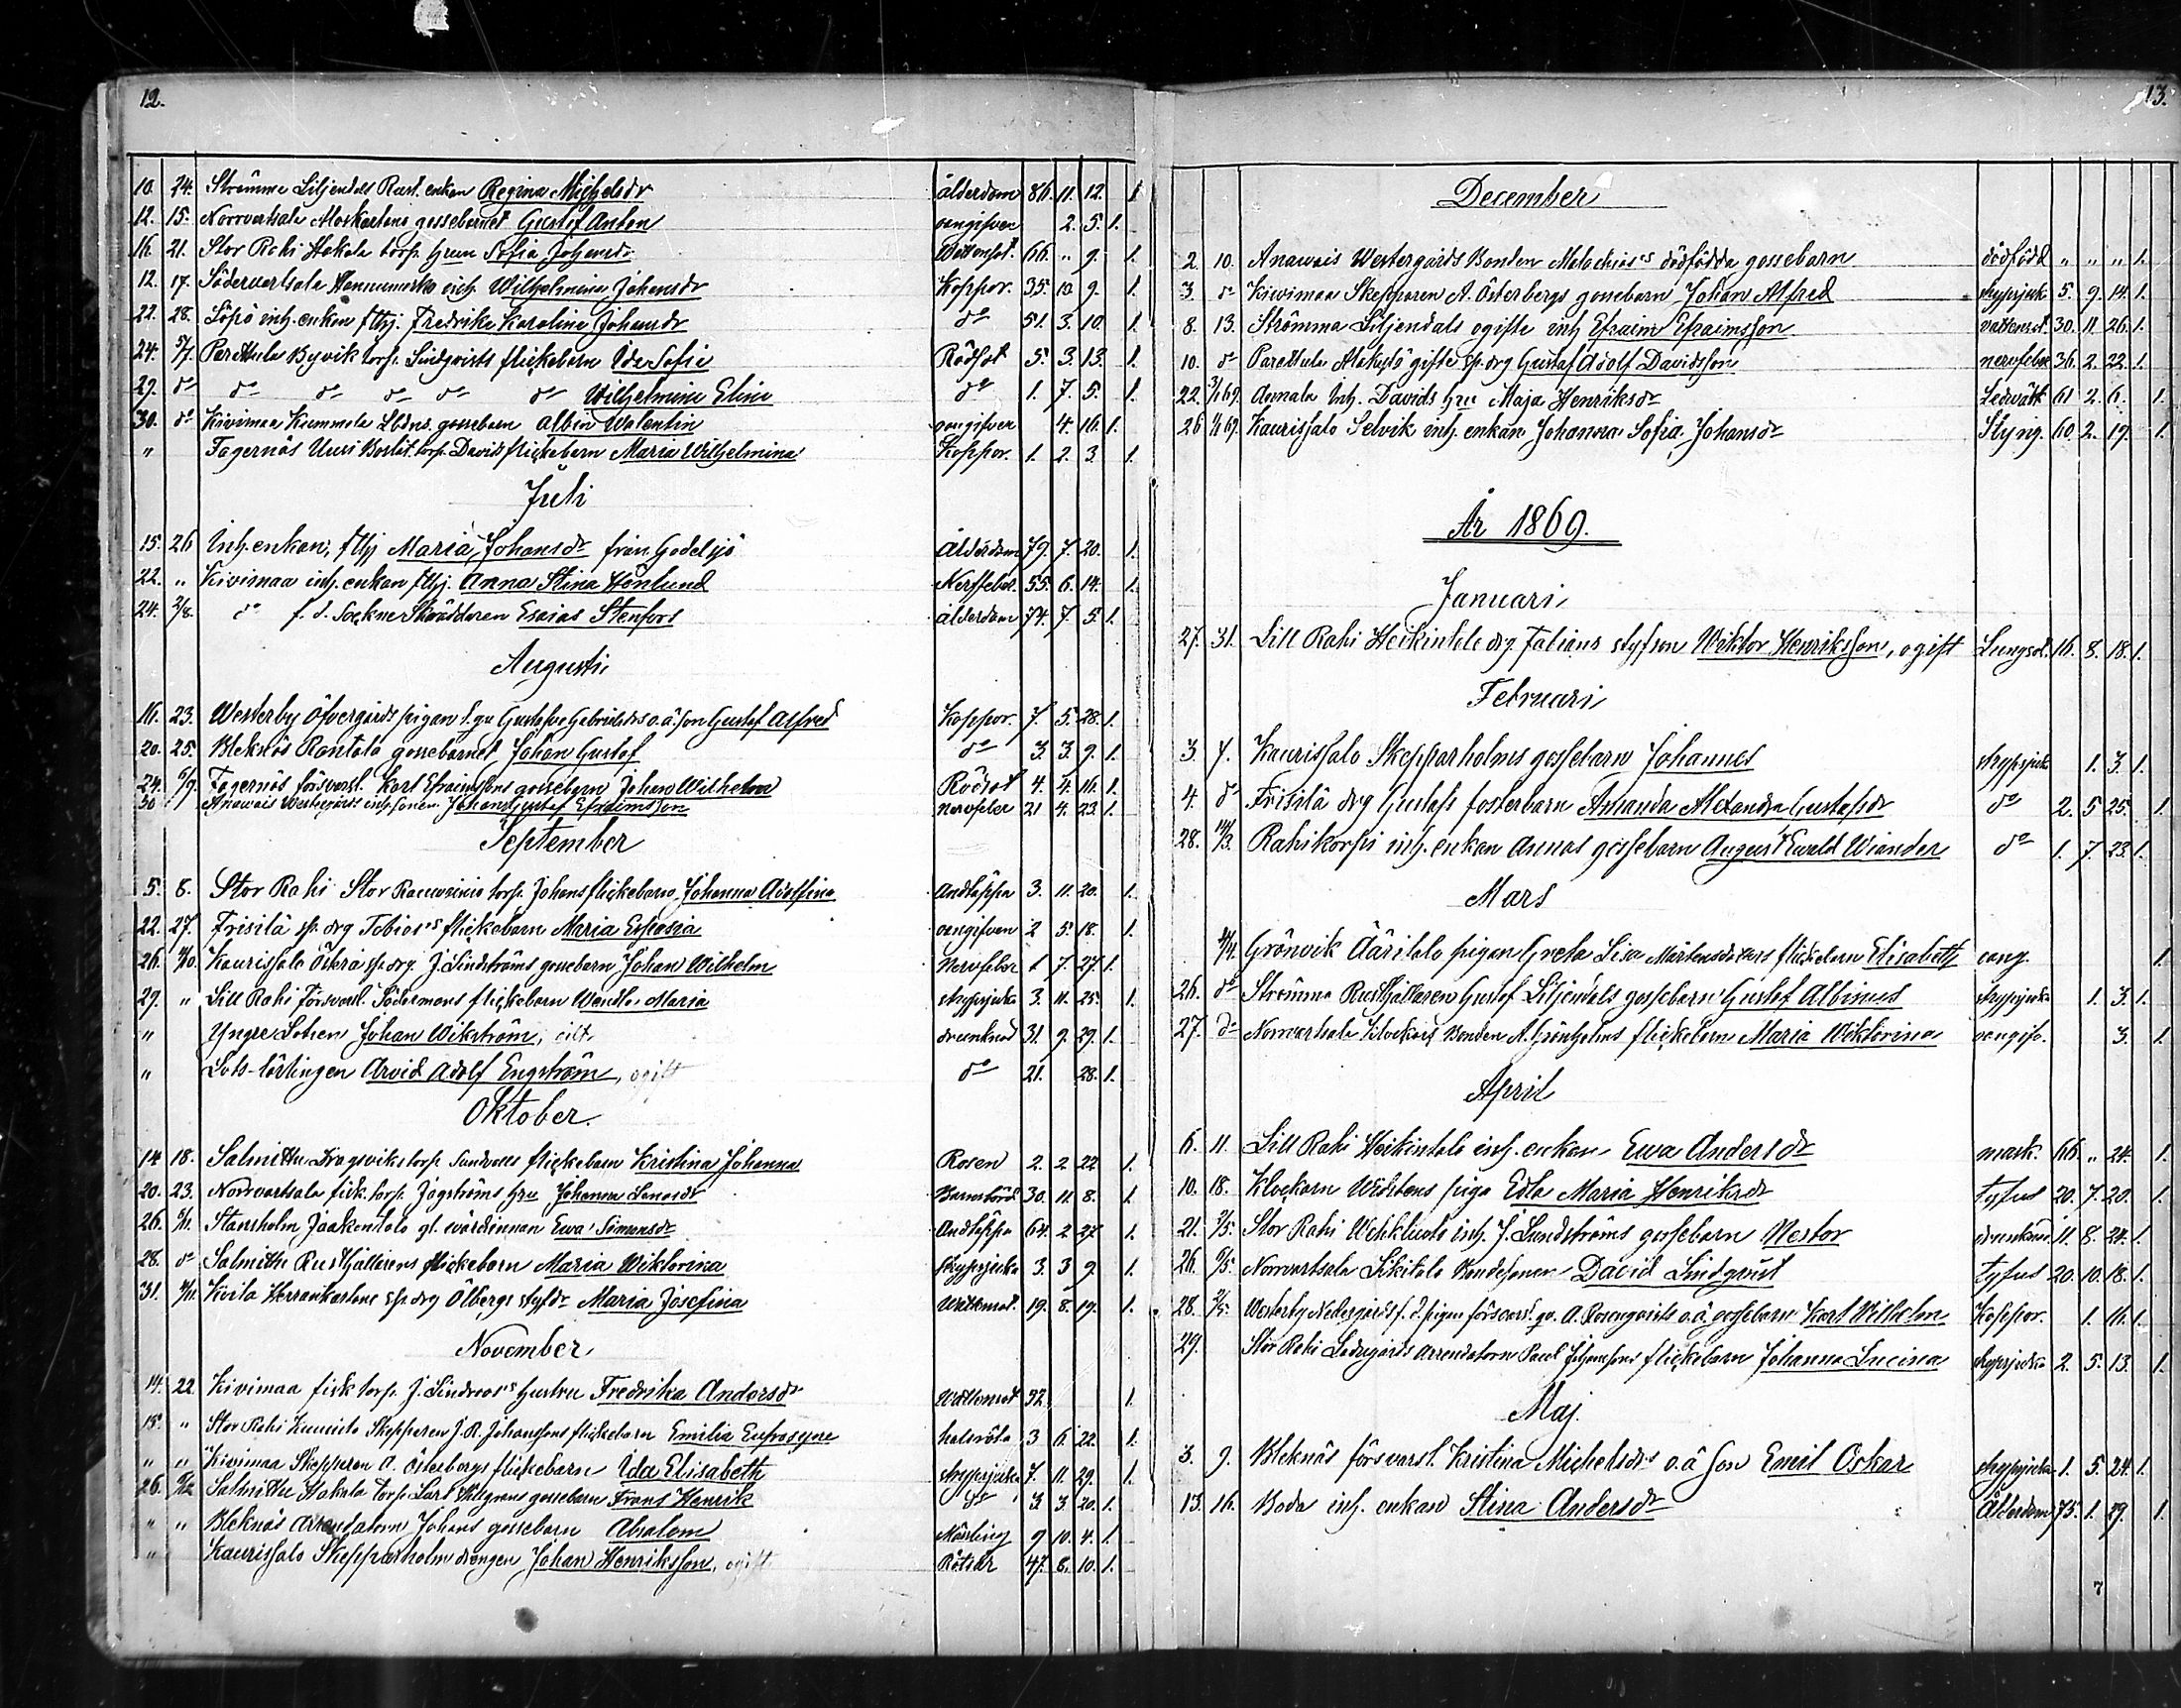 12.
10. 24. Strömma Liljendals Rust. enkan Regina Michelsdr ålderdom 86. 11. 12. 1.
12. 15. Norrvartsala gossebarnet Gustaf Anton oangifven 2. 5. 1.
16. 21. Stor Rahi Hakala torp. hrun Sofia Johansdr Wattensot. 66. " 9. 1.
12. 17. Södervartsala inh. Wilhelmina Johansdr Koppor. 35. 10. 9. 1.
22. 28. Löpö inh. enkan ftthj. Fredrika Karolina Johansdr do 51. 3. 10. 1.
24. 5/7. Parattula Byvik torp. Lindqvists flickebarn Ida Sofia Rödsot 5. 3. 13. 1.
29. do do do do do do Wilhelmina Elina do 1. 7. 5. 1.
30. do Kivimaa Kummela gossebarn Albin Walentin oangifven 4. 16. 1.
" Fagernäs torp. Davids flickebarn Maria Wilhelmina Koppor. 1. 2. 3. 1.
Juli
15. 26 Inh. enkan, ftthj Maria Johansdr från Godelsjö Ålderdom 79. 7. 20. 1.
22. " Kivimaa inh. enkan ftthj. Anna Stina Hönlund Nervfeber. 55. 6. 14. 1.
24. 2/8. do f. d. Sockne Skräddaren Esaias Stenfors ålderdom 74. 7. 5. 1.
Augusti
16. 23. Westerby Öfvergårds pigan Gabrielsdrs o. ä. son Gustaf Alfred Koppor. 7. 5. 28. 1.
20. 25. Bleknäs Rantala gossebarnet Johan Gustaf do 3. 3. 9. 1.
24. 6/9. Fagernäs försvarsl. Karl Efraimssons gossebarn Johan Wilhelm Rödsot 4. 4. 16. 1.
30 Anawais Westergårds inh. sonen Johan Gustaf Efraimsson nervfeber 21 4. 23. 1.
September
5. 8. Stor Rahi Stor torp. Johans flickebarn Johanna Adolfina Andtäppa 3. 11. 20. 1.
22. 27. Frisilä sp. drg Tobias's flickebarn Maria oangifven 2 5. 18. 1.
26. Kaurissalo sp. drg. J. Lindströms gossebarn Johan Wilhelm Nervfeber 1 7. 27. 1.
29. " Lill Rahi Försvarsl. Södermans flickebarn Wendla Maria strypsjuka 3. 11. 25. 1.
" Yngre Lotsen Johan Wikström, drunknad 31. 9. 29. 1.
" Lots-lärlingen Arvid Adolf Engström, ogift do 21. 28. 1.
Oktober.
14 18. Salmittu Dragsviks torp. Sundvalls flickebarn Kristina Johanna Rosen 2. 2 22 1.
20. 23. Norrvartsala fisk. torp. Jägströms hru Johanna Barnsbörd 30. 11. 8. 1.
26. Starrsholm Jaakentalo gl. värdinnan Ewa Simonsdr Andtäppa 64. 2 27. 1.
28. do Salmittu Rusthållarens flickebarn Maria Wiktorina strypsjuka 3. 3 9. 1.
31. Kivila sp. drg Ölbergs styfdr Maria Josefina Wattensot. 19. 8. 19. 1.
November
14. 22 Kivimaa fisk torp. J. Lindroos's hustru Fredrika Andersdr Wattensot 32 1.
15. " Stor Rahi Skepparen J. R. Johanssons flickebarn Emilia Eufrosyne halsröta 3 6. 22. 1.
" " Kivimaa Skepparen A. Österbergs flickebarn Ida Elisabeth strypsjuka 7. 11. 29. 1.
26. Salmittu Hakala torp. gossebarn Frans Henrik do 3 3. 20. 1.
" " Bleknäs Arrendatorn Johans gossebarn Absalom Mässling 9 10. 4. 1.
" Kaurissalo Skepparholm drängen Johan Henriksson, ogift Rötsår 47. 8. 10. 1.
13.
December
2. 10. Anawais Westergårds Bonden Malachias's dödfödda gossebarn dödfödd " " " 1.
3. do Kivimaa Skepparen A. Österbergs gossebarn Johan Alfred strypsjuk 5. 9. 14. 1.
8. 13. Strömma Liljendals ogifte inh Efraim Efraimsson vattensot. 30. 11. 26. 1.
10. do Parattula gifte sp. drg Gustaf Adolf Davidsson nervfeber 36. 2. 22. 1.
22. 3/1 69. Annala Inh. Davids hru Maja Henriksdr Ledvärk 61 2. 6. 1.
26 Kaurissalo Selvik inh. enkan Johanna Sofia Johansdr Styng. 60. 2. 19. 1.
År 1869.
Januari
27. 31. Lill Rahi Heikintalo drg. styfson Wiktor Henriksson, ogift Lungsot. 16. 8. 18. 1.
Februari
3. 7. Kaurissalo Skepparholms gossebarn Johannes strypsjuk 1. 3. 1.
4. do Frisilä drg Gustafs fosterbarn Amanda Alexandra Gustafsdr do 2. 5 25. 1.
28. 14/3. Rahikorpi inh. enkan Annas gossebarn August Ewald Wiander do 1. 7. 23. 1.
Mars
Grönvik Ääritalo pigan Greta Lisa Mårtensdotters flickebarn Elisabeth oang. 1.
26. do Strömma Rusthållaren Gustaf Liljendals gossebarn Gustaf Albinus strypsjuka 1. 3. 1.
27. do Norrvartsala Bonden A. Grönholms flickebarn Maria Wiktorina oangifv. 3. 1.
April
6. 11. Lill Rahi Heikintalo inh. enkan Ewa Andersdr mask. 66. " 24. 1.
10. 18. Klockarn Widstens piga Edla Maria Henriksdr tyfus 20. 7. 20. 1.
21. 2/5. Stor Rahi inh. J. Lundströms gossebarn Nestor drunknad. 11. 8. 24. 1.
26. 6/5. Norrvartsala Sikitalo Bondesonen David Lindqvist tyfus 20. 10. 18. 1.
28. 2/5. Westerby Nedergårds f. d. pigan försvarsl. qv. A. Rosenqvists o. ä. gossebarn Karl Wilhelm Koppor. 1. 16. 1.
29. Stor Rahi Ladugårds arrendatorn Paul Johanssons flickebarn Johanna Lucina strypsjuka 2. 5. 13. 1.
Maj.
3. 9. Bleknäs försvarsl. Kristina Michelsdrs o. ä son Emil Oskar strypsjuka 1. 5. 24. 1.
13. 16. Boda inh. enkan Stina Andersdr Ålderdom 75. 1. 29. 1.